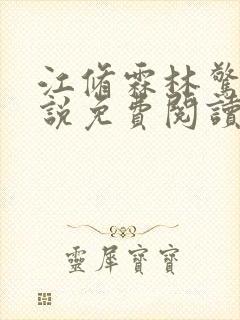 江脩霖林驚
說免費閱讀
靈犀寶寶